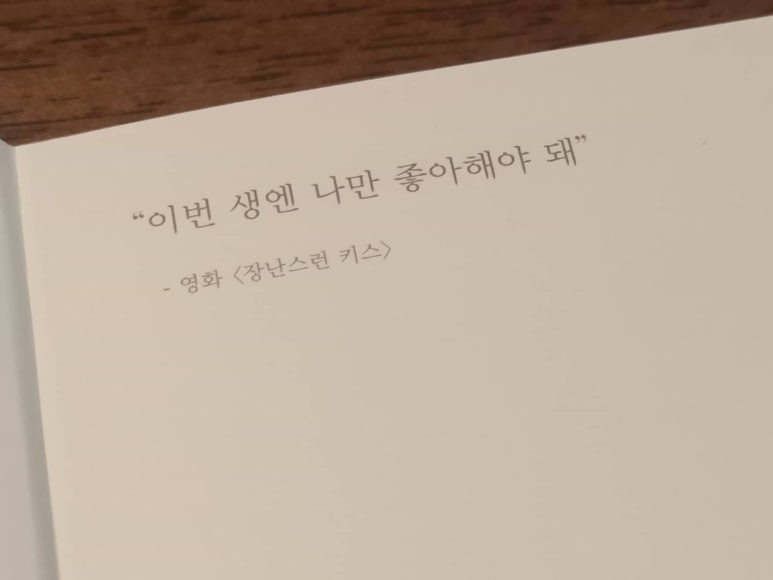 “이번 생엔 나만 좋아해야 돼”
- 영화 〈장난스런 키스〉